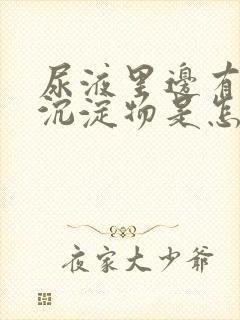 尿液里邊有
沉淀物是怎
夜家大少爺